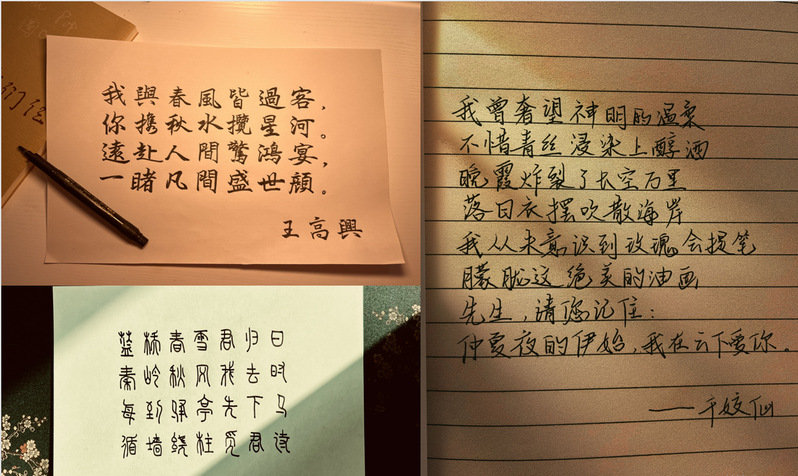 我與春風皆過客,
你携秋水攬星河。
遠赴人間驚鴻宴,
一睹凡間盛世顔。
王高興
蓝桥春雪君归日
秦岭秋风我去时
每到驿亭先下马
循墙绕柱觅君诗
我曾奢望神明的温柔
不惜青丝浸染上醇酒
晚霞炸裂了长空万里
落日衣摆吹散海岸
我从未意识到玫瑰会损笔
朦胧这绝美的油画
先生,请您记住:
仲夏夜的伊始,我在云下爱你。
——千姣仙